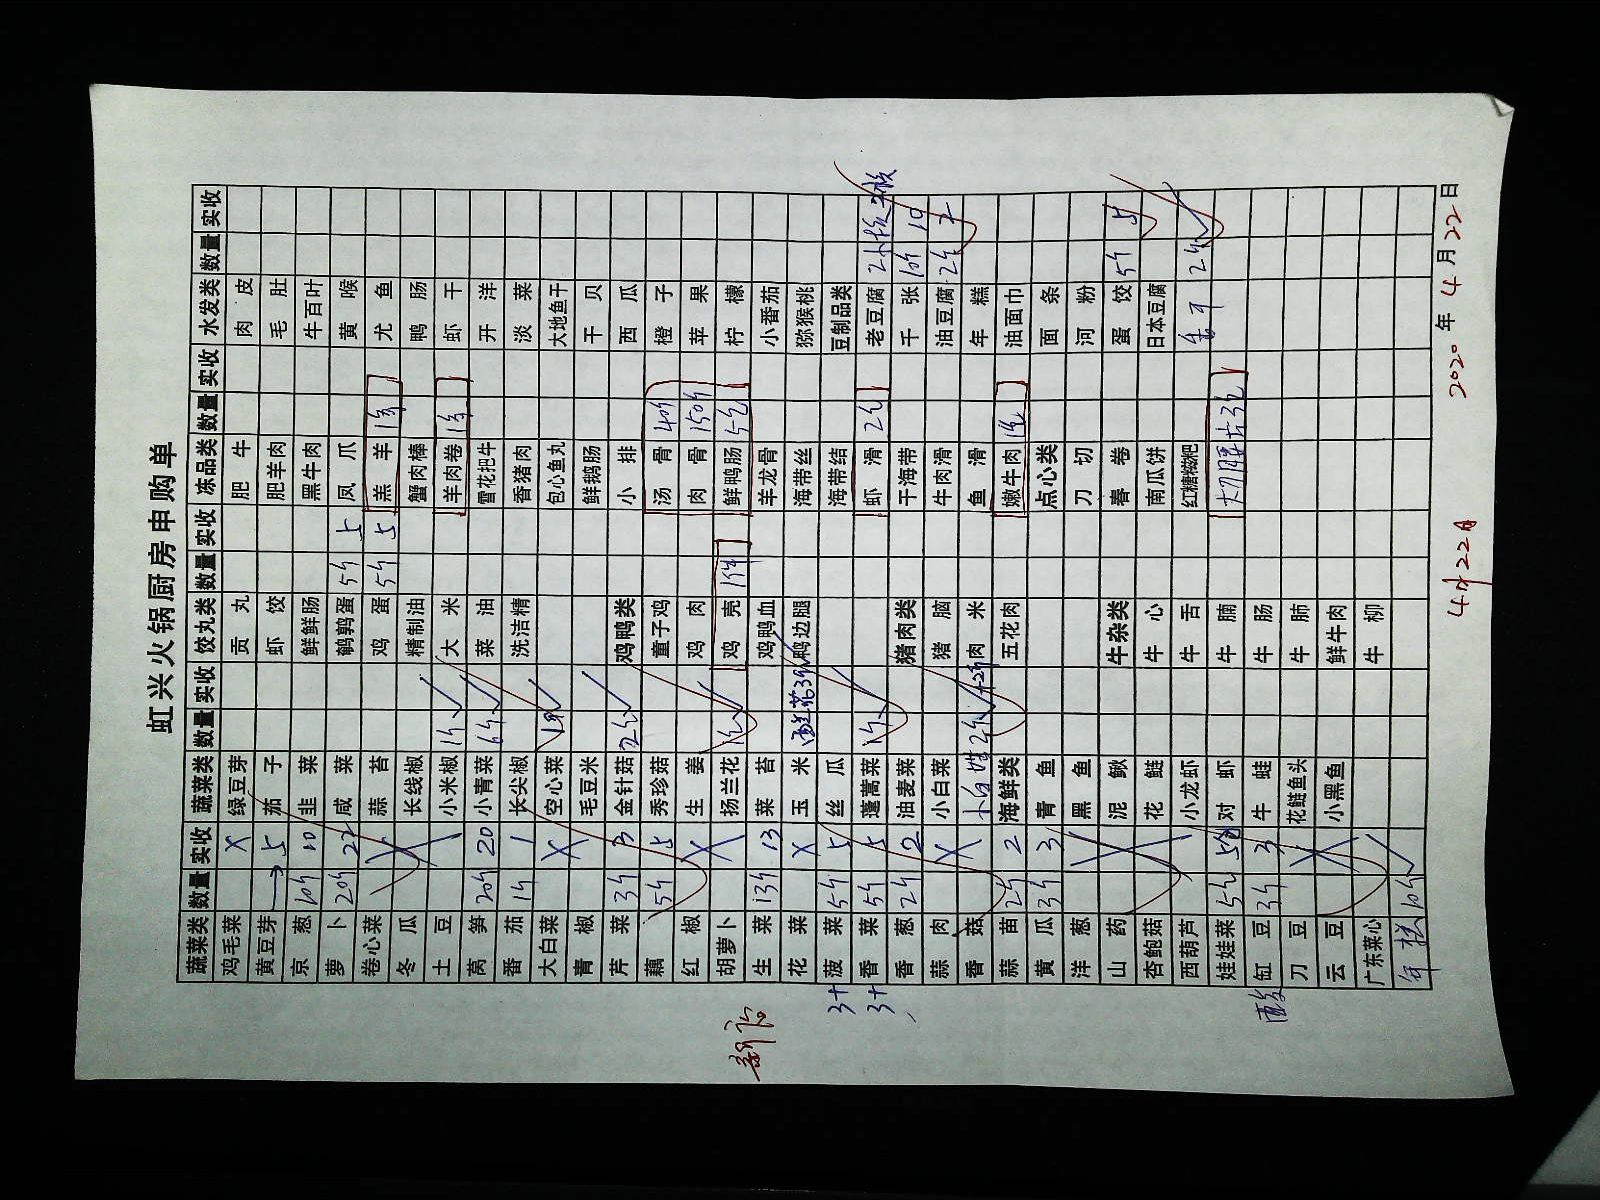 虹兴火锅厨房申购单
蔬菜类 数量 实收 蔬菜类 数量 实收 饺丸类 数量 实收 冻品类 数量 实收 水发类 数量 实收
鸡毛菜 X 绿豆芽 贡丸 肥牛 肉皮
黄豆芽 → 5 茄子 虾饺 肥羊肉 毛肚
京葱 10斤 10 韭菜 鲜鲜肠 黑牛肉 牛百叶
萝卜 20斤 22 咸菜 鹌鹑蛋 5斤 5 凤爪 黄喉
卷心菜 蒜苔 鸡蛋 5斤 5 羔羊 1条 尤鱼
冬瓜 X 长线椒 精制油 蟹肉棒 鸭肠
土豆 小米椒 1斤 ✓ 大米 羊肉卷 1条 虾干
莴笋 20斤 20 小青菜 6斤 ✓ 菜油 雪花把牛 开洋
番茄 1斤 1 长尖椒 洗洁精 香猪肉 淡菜
大白菜 X 空心菜 ✓ 包心鱼丸 大地鱼干
青椒 毛豆米 ✓ 鲜鹅肠 干贝
芹菜 3斤 3 金针菇 2包 ✓ 鸡鸭类 小排 西瓜
藕 5斤 5 秀珍菇 童子鸡 汤骨 40斤 橙子
红椒 X 生姜 鸡肉 肉骨 150斤 苹果
胡萝卜 X 扬兰花 1包 ✓ 鸡壳 1件 鲜鸭肠 5包 柠檬
生菜 13斤 13 菜苔 鸡鸭血 羊龙骨 小番茄
花菜 X 玉米 3斤 鸭边腿 海带丝 猕猴桃
3+ 菠菜 5斤 5 丝瓜 海带结 豆制品类
3+ 香菜 5斤 5 蓬蒿菜 1斤 ✓ 虾滑 2包 老豆腐 2板
香葱 2斤 2 油麦菜 猪肉类 干海带 千张 10斤 10
蒜肉 X 小白菜 猪脑 牛肉滑 油豆腐 2斤 2
香菇 2斤 ✓ +2斤 肉米 鱼滑 年糕
蒜苗 2斤 2 海鲜类 五花肉 嫩牛肉 1包 油面巾
黄瓜 3斤 3 青鱼 点心类 面条
洋葱 黑鱼 刀切 河粉
山药 X 泥鳅 牛杂类 春卷 蛋饺 5斤 5
杏鲍菇 花鲢 牛心 南瓜饼 日本豆腐
西葫芦 小龙虾 牛舌 红糖糍粑 香干 2斤 ✓
娃娃菜 5包 对虾 牛腩 大刀腰片3包
酸 缸豆 3斤 3 牛蛙 牛肠
刀豆 X 花鲢鱼头 牛肺
云豆 小黑鱼 鲜牛肉
广东菜心 牛柳
年糕 10斤 ✓
4月22日
2020年4月22日